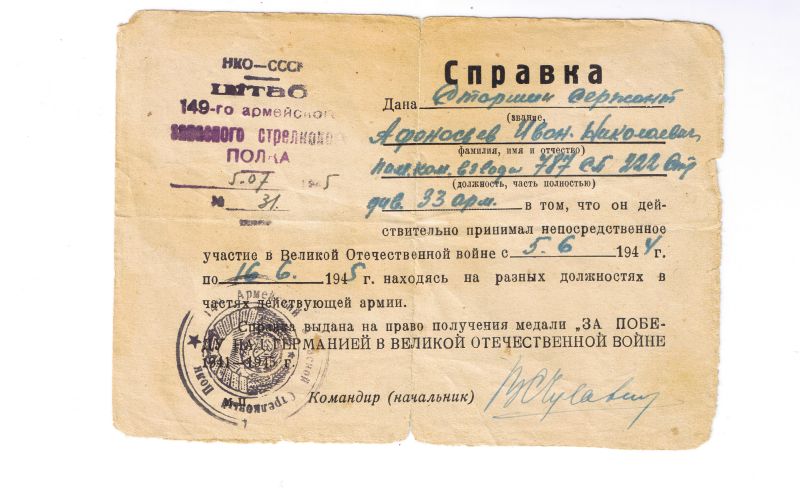 НКО—СССР
ШТАБ
149-го армейского
запасного стрелково
ПОЛКА
5.07 1945
№ 31.
Справка
Дана Старшин сержант
(звание,
Афонасьев Иван Николаевич
фамилия, имя и отчество)
пом. ком. взвода 787 сп 222 Стр
(должность, часть полностью)
див. 33 арм. в том, что он дей-
ствительно принимал непосредственное
участие в Великой Отечественной войне с 5.6 1944 г.
по 16.6. 1945 г. находясь на разных должностях в
частях действующей армии.
Справка выдана на право получения медали „ЗА ПОБЕ-
ДУ НАД ГЕРМАНИЕЙ В ВЕЛИКОЙ ОТЕЧЕСТВЕННОЙ ВОЙНЕ
1941—1945 г.
Армейский
Стрелковый Полк
Командир (начальник)